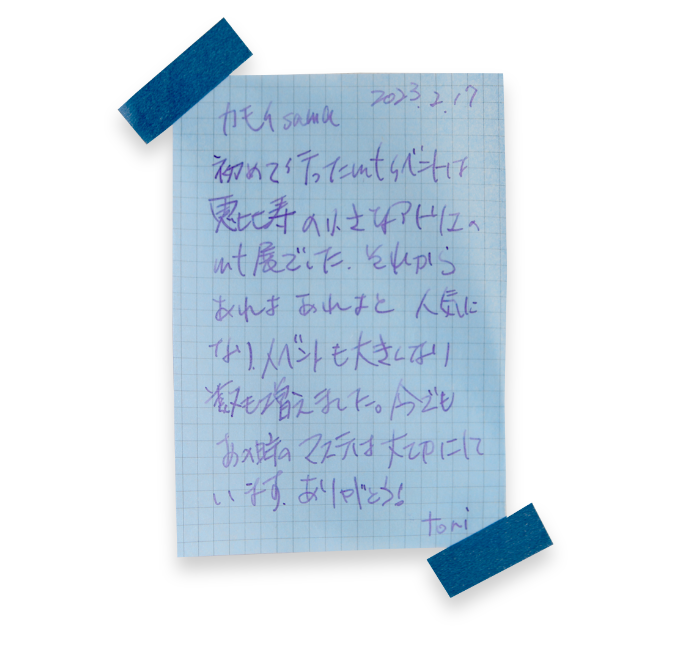 2023.2.17
カモ井sama
初めて行ったmtイベントは
恵比寿の小さなアトリエの
mt展でした. それから
あれよあれよと 人気に
なり、イベントも大きくなり
数も増えました。今でも
あの時のマステは大切にして
います. ありがとう!
tomi